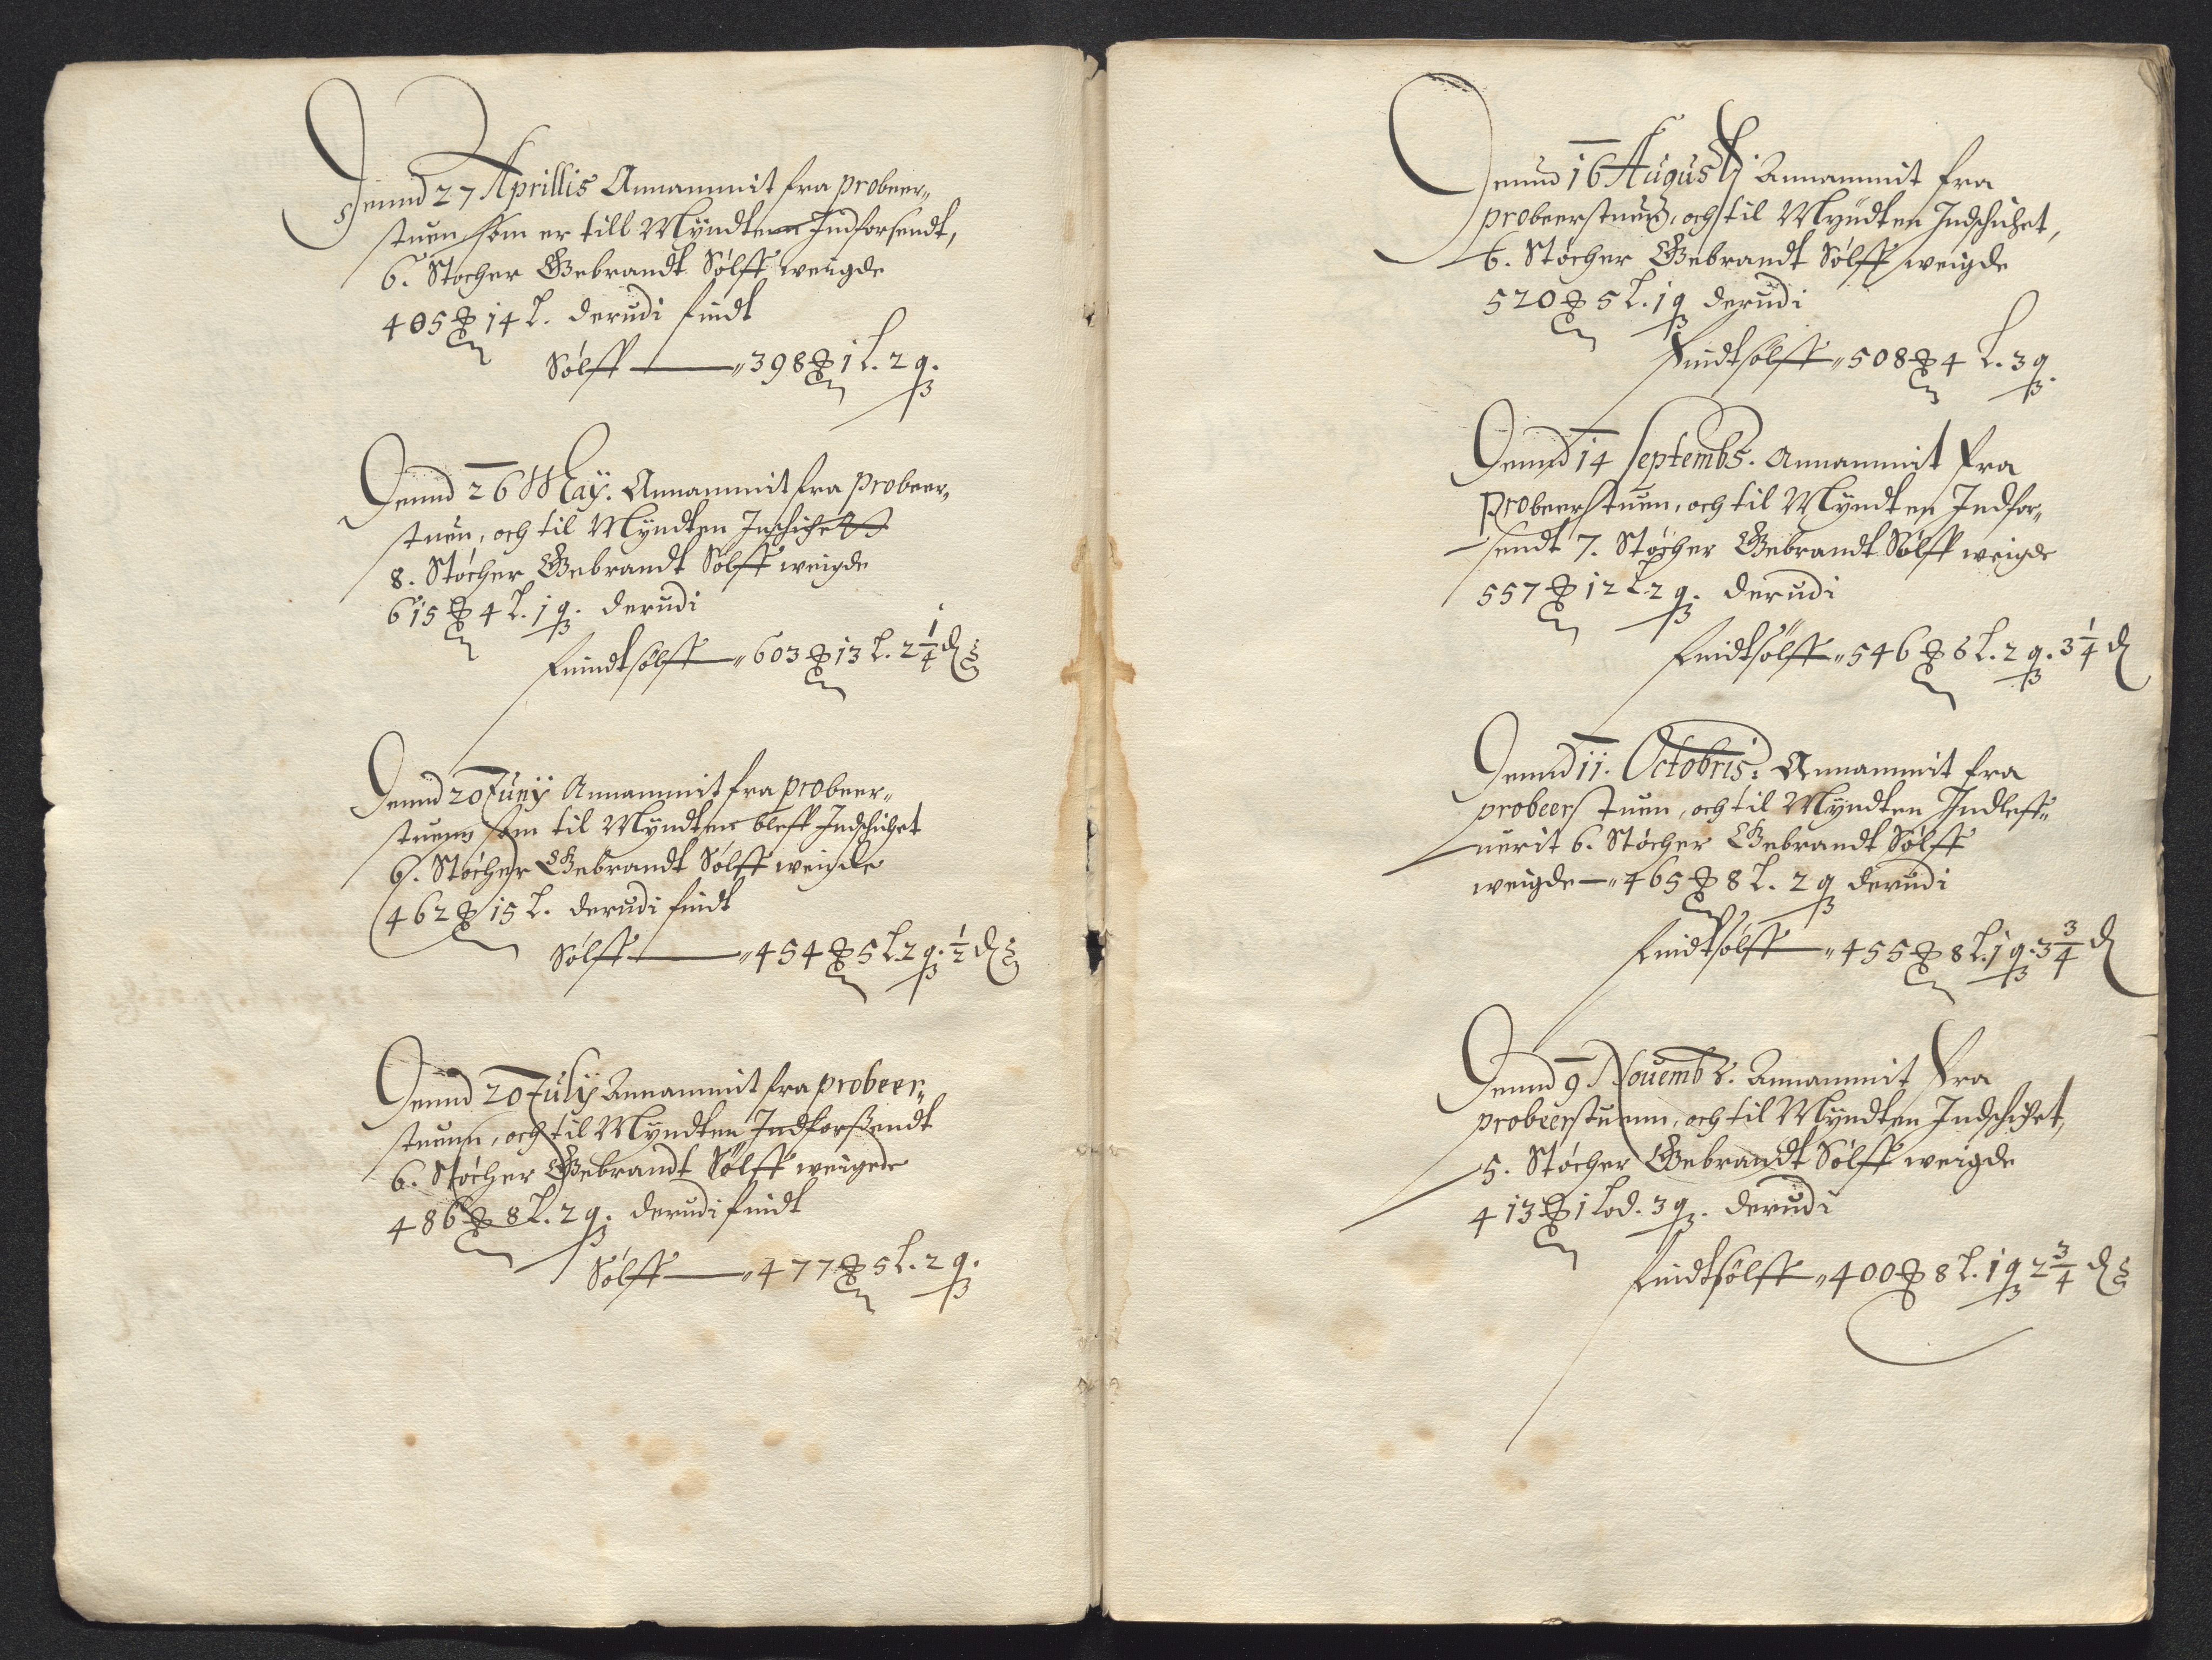 Dennd 27 Aprillis Annammit fra probeer„
stuen som er till Myndten Indforsendt,
6. Støcher Gebrandt Sølff weigde
405 ℔ 14 L. derudi findt
Sølff — „ 398 ℔ 1 L. 2 q.
Dennd 26 Maÿ. Annammit fra Probeer„
stuen, och til Myndten Inschichett
8. Støcher Gebrandt Sølff weigde
615 ℔ 4 L. 1 q. derudi
Finndt sølff — „ 603 ℔ 13 L. 2 1/4 ₰
Dennd 20 Junÿ Annammit fra probeer„
stuenn som til Myndten bleff Indschichet
6. Støcher Gebrandt Sølff weigde
462 ℔ 15 L. derudi findt
Sølff — „ 454 ℔ 5 L. 2 q. 1/2 ₰
Dennd 20 Julÿ Annammit fra probeer„
stuenn, och til Myndten Indforßendt
6. Støcher Gebrandt Sølff weigede
486 ℔ 8 L. 2 q. derudi findt
Sølff — „ 477 ℔ 5 L. 2 q.
Dennd 16 Augusti Annammit fra
probeerstuen, och til Myndten Indschichet,
6. Støcher Gebrandt Sølff weigde
520 ℔ 5 L. 1 q derudi
Findt sølff „ 508 ℔ 4 L. 3 q.
Dennd 14 Septembs. Annammit fra
Probeerstuen, och til Myndten Indfor„
sendt 7. Støcher Gebrandt Sølff weigde
557 ℔ 12 L 2 q. derudi
Findt sølff „ 546 ℔ 6 L. 2 q. 3 1/4 ₰
Dennd 11. Octobris: Annammit fra
probeerstuen, och til Myndten Indleff„
uerit 6. Støcher Gebrandt Sølff
weigde — „ 465 ℔ 8 L. 2 q derudi
Findt sølff — „ 455 ℔ 8 L. 1 q. 3 3/4 ₰
Dennd 9 Nouembs. Annammit fra
probeerstuenn, och til Myndten Indschichet,
5. Støcher Gebrandt Sølff weigde
413 ℔ 1 Lod. 3 q. derudi
Findt sølff — „ 400 ℔ 8 L. 1 q 2 3/4 ₰